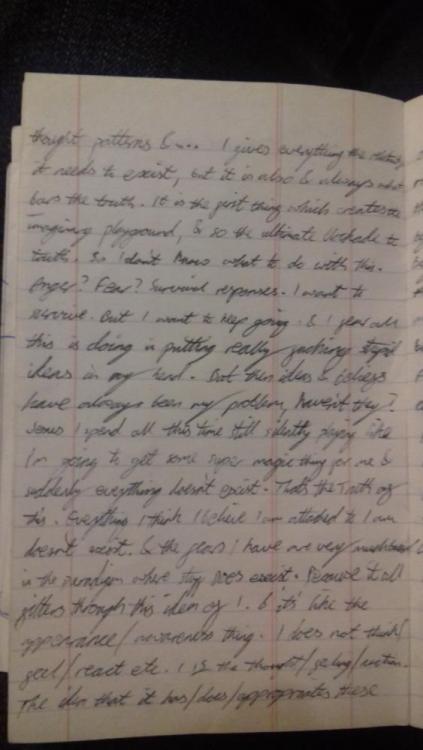 thought patterns &... I gives everything the
it needs to exist, but it is also & always what
bars the truth. It is the first thing which creates the
imagining playground, & so the ultimate blockade to
truth. So I don't know what to do with this.
Anger? Fear? Survival responses. I want to
survive. But I want to keep going. & I fear all
this is doing is putting really fucking stupid
ideas in my head. But then ideas & beliefs
have always been my problem, haven't they?
Jesus I spend all this time still silently playing like
I'm going to get some super magic thing for me &
suddenly everything doesn't exist. That's the Truth of
this. Everything I think I believe I am attached to I am
doesn't exist. & the fears I have are very
in the paradigm where stuff DOES exist. Because it all
filters through this idea of I. & it's like the
appearance/awareness thing. I does not think/
feel/react etc. I IS the thought/feeling/action.
The idea that it has/does/appropriates these